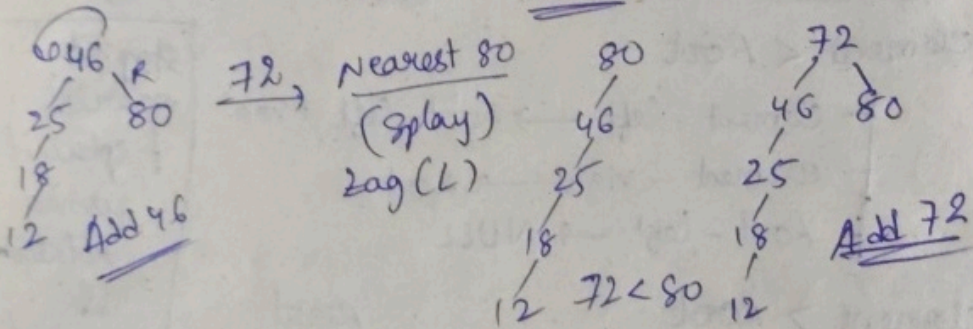 46 R
25 80
18
12 Add 46
72,
Nearest 80
(Splay)
zag (L)
80
46
25
18
12 72 < 80
72
46 80
25
18
12
Add 72